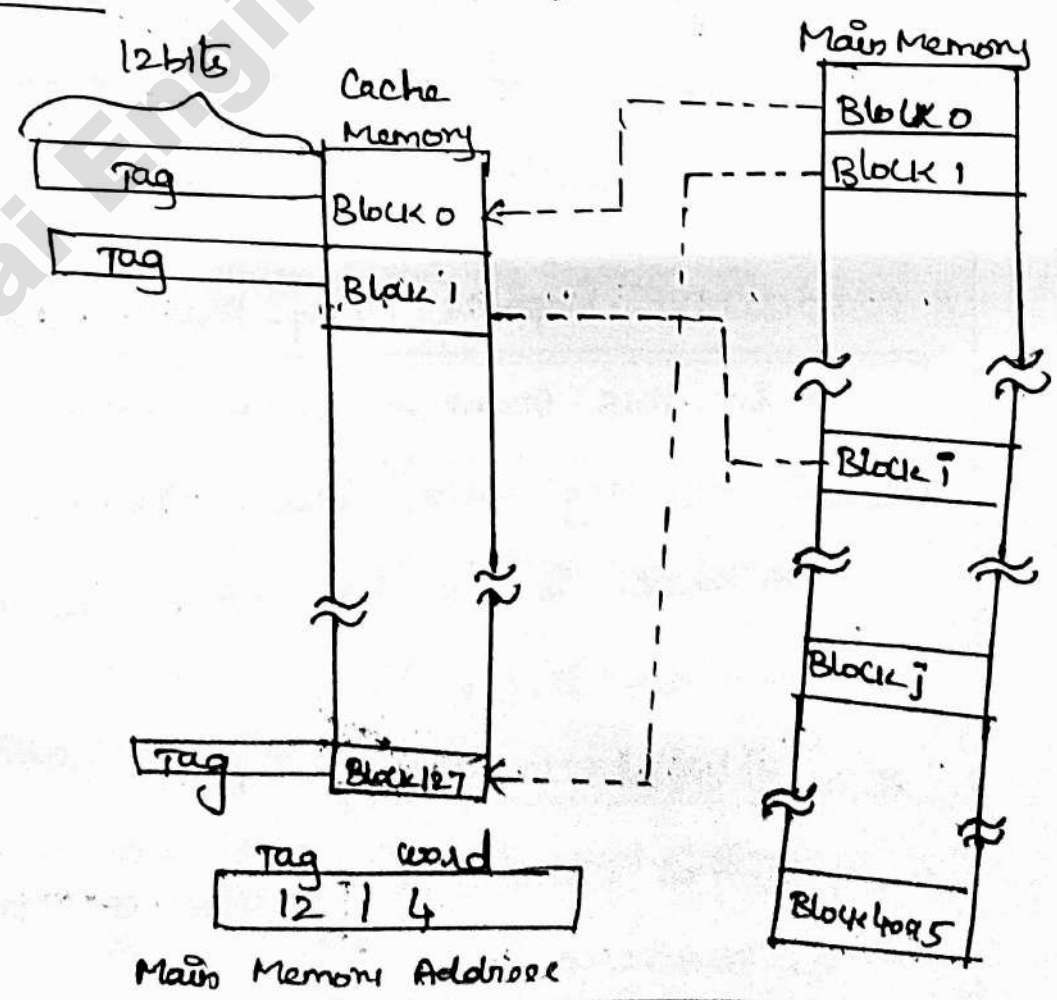 12bits
Cache
Memory
Tag
Block 0
Tag
Block 1
Tag
Block 127
Main Memory
Block 0
Block 1
Block i
Block j
Block 4095
Tag word
12 | 4
Main Memory Address